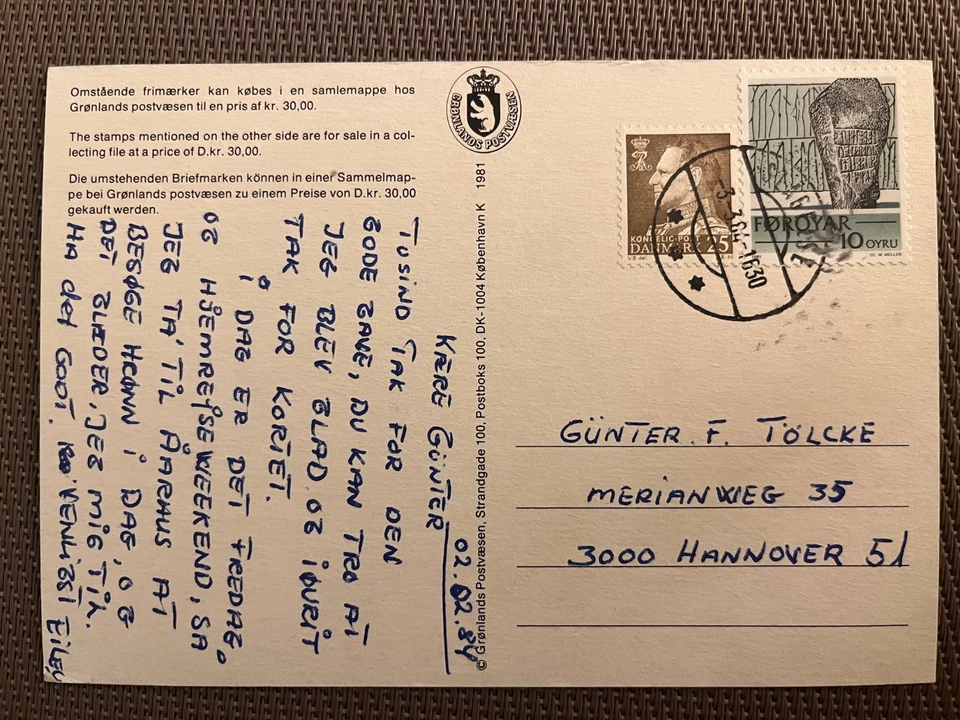 Omstående frimærker kan købes i en samlemappe hos
Grønlands postvæsen til en pris af kr. 30,00.
The stamps mentioned on the other side are for sale in a col-
lecting file at a price of D.kr. 30,00.
Die umstehenden Briefmarken können in einer Sammelmap-
pe bei Grønlands postvæsen zu einem Preise von D.kr. 30,00
gekauft werden.
GRØNLANDS POSTVÆSEN
© Grønlands Postvæsen, Strandgade 100, Postboks 100, DK-1004 København K 1981
02.02.84
KÆRE GÜNTER
TUSIND TAK FOR DEN
GODE GAVE, DU KAN TRO AT
JEG BLEV GLAD OG IØVRIT
TAK FOR KORTET.
I DAG ER DET FREDAG
OG HJEMREJSEWEEKEND, SÅ
JEG TA'TIL ÅARHUS AT
BESØGE HEØNN I DAG, OG
DET GLÆDER, JEG MIG TIL.
HA det GODT. VENLIGST
KONGELIG POST
DANMARK 25
FØROYAR
10 OYRU
1630
GÜNTER. F. TÖLCKE
MERIANWEG 35
3000 HANNOVER 51